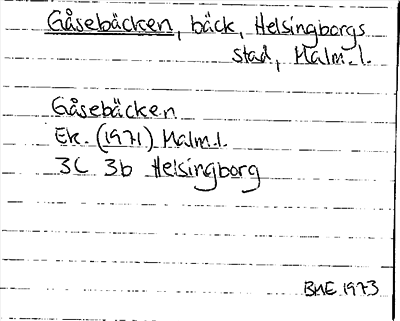 Gåsebäcken, bäck, Helsingborgs
stad, Malm. l.
Gåsebäcken
Ek. (1971) Malm. l.
3C 3b Helsingborg
BME 1973